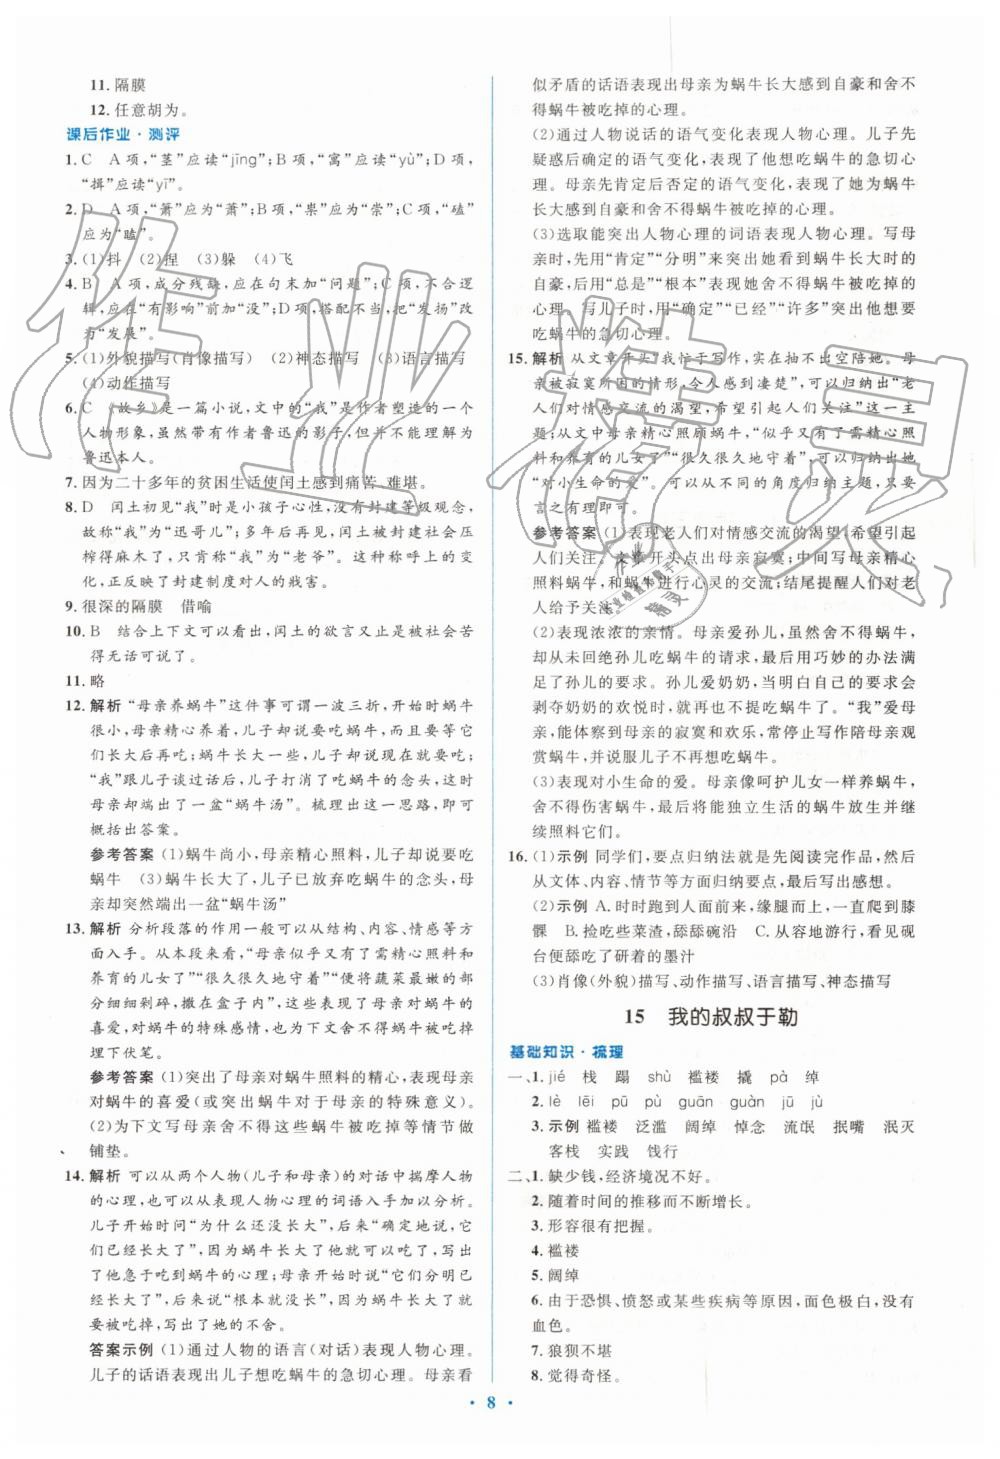 11. 隔膜
12. 任意胡为。
课后作业·测评
1. C　A 项,“茎”应读“jīng”;B 项,“寓”应读“yù”;D 项,
“揖”应读“yī”。
2. D　A 项,“箫”应为“萧”;B 项,“祟”应为“崇”;C 项,“磕”
应为“瞌”。
3. (1)抖　(2)捏　(3)躲　(4)飞
4. B　A 项,成分残缺,应在句末加“问题”;C 项,不合逻
辑,应在“有影响”前加“没”;D 项,搭配不当,把“发扬”改
为“发展”。
5. (1)外貌描写(肖像描写)　(2)神态描写　(3)语言描写
(4)动作描写
6. C　《故乡》是一篇小说,文中的“我”是作者塑造的一个
人物形象,虽然带有作者鲁迅的影子,但并不能理解为
鲁迅本人。
7. 因为二十多年的贫困生活使闰土感到痛苦 难堪。
8. D　闰土初见“我”时是小孩子心性,没有封建等级观念,
故称“我”为“迅哥儿”;多年后再见,闰土被封建社会压
榨得麻木了,只肯称“我”为“老爷”。这种称呼上的变
化,正反映了封建制度对人的戕害。
9. 很深的隔膜　借喻
10. B　结合上下文可以看出,闰土的欲言又止是被社会苦
得无话可说了。
11. 略
12. 解析　“母亲养蜗牛”这件事可谓一波三折,开始时蜗牛
很小,母亲精心养着,儿子却说要吃蜗牛,而且要等它
们长大后再吃;蜗牛长大一些,儿子却说现在就要吃;
“我”跟儿子谈过话后,儿子打消了吃蜗牛的念头,此时
母亲却端出了一盆“蜗牛汤”。梳理出这一思路,即可
概括出答案。
参考答案　(1)蜗牛尚小,母亲精心照料,儿子却说要吃
蜗牛　(3)蜗牛长大了,儿子已放弃吃蜗牛的念头,母
亲却突然端出一盆“蜗牛汤”
13. 解析　分析段落的作用一般可以从结构、内容、情感等方
面入手。从本段来看,“母亲似乎又有了需精心照料和
养育的儿女了”“很久很久地守着”“便将蔬菜最嫩的部
分细细剁碎,撒在盒子内”,这些表现了母亲对蜗牛的
喜爱,对蜗牛的特殊感情,也为下文舍不得蜗牛被吃掉
埋下伏笔。
参考答案　(1)突出了母亲对蜗牛照料的精心,表现母亲
对蜗牛的喜爱(或突出蜗牛对于母亲的特殊意义)。
(2)为下文写母亲舍不得这些蜗牛被吃掉等情节做
铺垫。
14. 解析　可以从两个人物(儿子和母亲)的对话中揣摩人物
的心理,也可以从表现人物心理的词语入手加以分析。
儿子开始时问“为什么还没长大”,后来“确定地说,它
们已经长大了”,因为蜗牛长大就可以吃了,写出
了他急于吃到蜗牛的心理;母亲开始时说“它们分明已
经长大了”,后来说“根本就没长”,因为蜗牛长大就要
被吃掉,写出了她的不舍。
答案示例　(1)通过人物的语言(对话)表现人物心理。
儿子的话语表现出儿子想吃蜗牛的急切心理。母亲看
似矛盾的话语表现出母亲为蜗牛长大感到自豪和舍不
得蜗牛被吃掉的心理。
(2)通过人物说话的语气变化表现人物心理。儿子先
疑惑后确定的语气变化,表现了他想吃蜗牛的急切心
理。母亲先肯定后否定的语气变化,表现了她为蜗牛
长大感到自豪和舍不得蜗牛被吃掉的心理。
(3)选取能突出人物心理的词语表现人物心理。写母
亲时,先用“肯定”“分明”来突出她看到蜗牛长大时的
自豪,后用“总是”“根本”表现她舍不得蜗牛被吃掉的
心理。写儿子时,用“确定”“已经”“许多”突出他想要
吃蜗牛的急切心理。
15. 解析　从文章开头“我忙于写作,实在抽不出空陪她。母
亲被寂寞所困的情形,令人感到凄楚”,可以归纳出“老
人们对情感交流的渴望,希望引起人们关注”这一主
题;从文中母亲精心照顾蜗牛,“似乎又有了需精心照
料和养育的儿女了”“很久很久地守着”,可以归纳出她
“对小生命的爱”。可以从不同的角度归纳主题,只要言
之有理即可。
参考答案　(1)表现老人们对情感交流的渴望,希望引起
人们关注。文章开头点出母亲寂寞;中间写母亲精心
照料蜗牛,和蜗牛进行心灵的交流;结尾提醒人们对老
人给予关注。
(2)表现浓浓的亲情。母亲爱孙儿,虽然舍不得蜗牛,
却从未回绝孙儿吃蜗牛的请求,最后用巧妙的办法满
足了孙儿的要求。孙儿爱奶奶,当明白自己的要求会
剥夺奶奶的欢悦时,就打消了吃蜗牛的念头。“我”爱母
亲,能体察到母亲的寂寞和欢乐,常停止写作陪母亲观
赏蜗牛,并说服儿子不再想吃蜗牛。
(3)表现对小生命的爱。母亲像呵护儿女一样养蜗牛,
舍不得伤害蜗牛,最后将能独立生活的蜗牛放生并继
续照料它们。
16. (1)示例　同学们,要点归纳法就是先阅读完作品,然后
从文体、内容、情节等方面归纳要点,最后写出感想。
(2)示例　A. 时时跑到人面前来,缘腿而上,一直爬到膝
髁　B. 捡吃些菜渣,舔舔碗沿　C. 从容地游行,看见砚
台便舔吃了研着的墨汁
(3)肖像(外貌)描写、动作描写、语言描写、神态描写
15　我的叔叔于勒
基础知识·梳理
一、1. jié　栈　蹋　shù　褴褛　撬　pà　绰
2. lè　lēi　pū　pù　guān　guàn　jū　jù
3. 示例　褴褛　泛滥　阔绰　悼念　流氓　抿嘴　泯灭
客栈　实践　饯行
二、1. 缺少钱,经济境况不好。
2. 随着时间的推移而不断增长。
3. 形容很有把握。
4. 褴褛
5. 阔绰
6. 由于恐惧、愤怒或某些疾病等原因,面色极白,没有
血色。
7. 狼狈不堪
8. 觉得奇怪。
· 8 ·
作业精灵